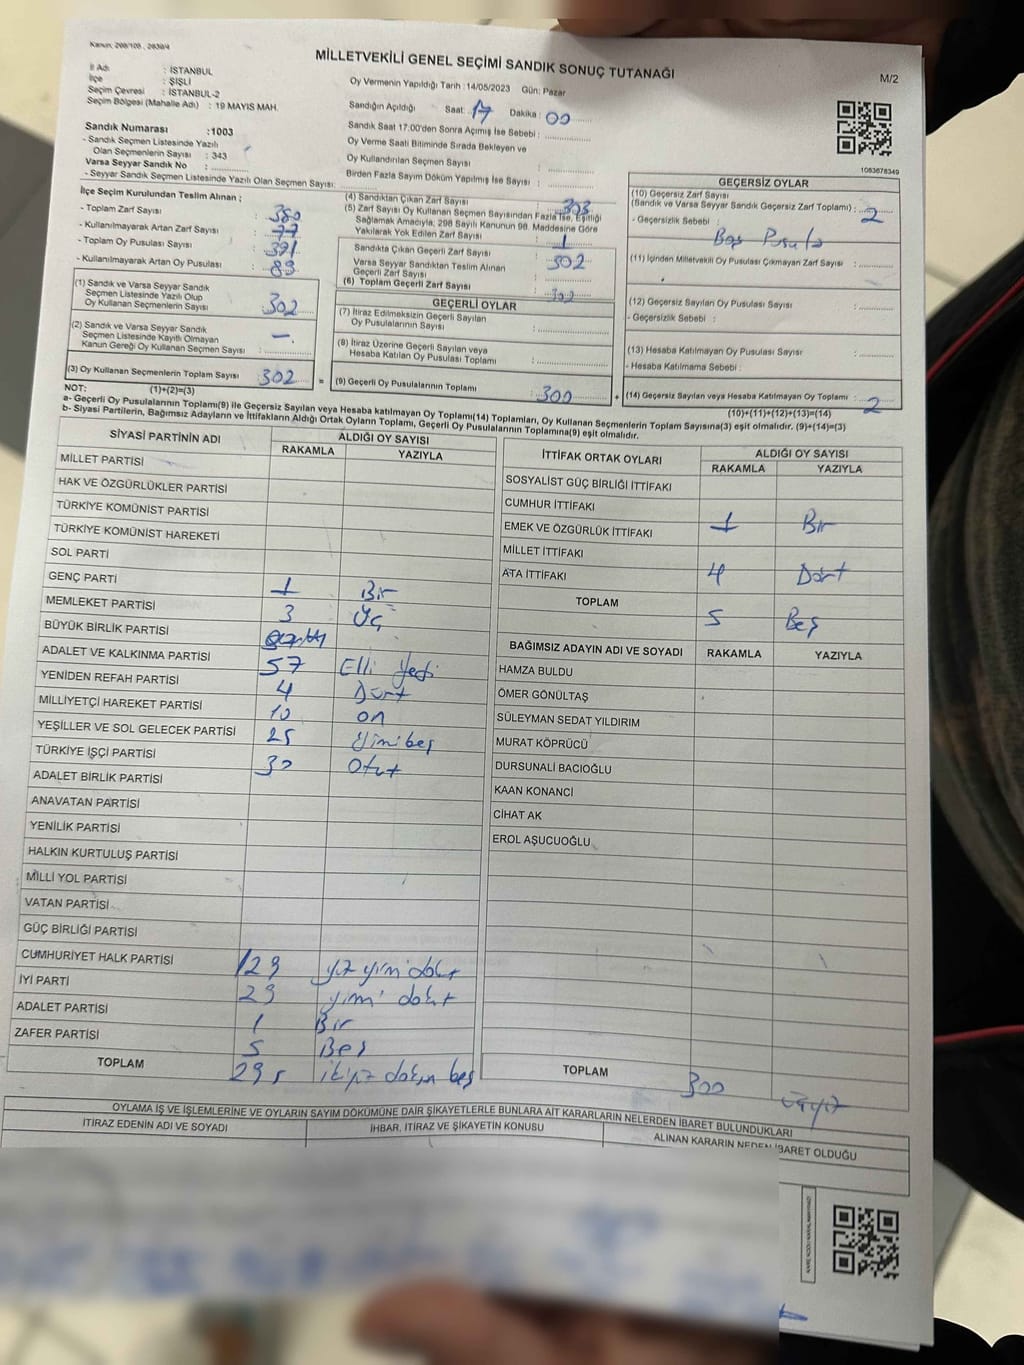 Kanun: 298/105 , 2839/4
MİLLETVEKİLİ GENEL SEÇİMİ SANDIK SONUÇ TUTANAĞI
M/2
İl Adı : İSTANBUL
İlçe : ŞİŞLİ
Seçim Çevresi : İSTANBUL-2
Seçim Bölgesi (Mahalle Adı) : 19 MAYIS MAH.
Sandık Numarası :1003
- Sandık Seçmen Listesinde Yazılı
Olan Seçmenlerin Sayısı : 343
Varsa Seyyar Sandık No :
- Seyyar Sandık Seçmen Listesinde Yazılı Olan Seçmen Sayısı:
Oy Vermenin Yapıldığı Tarih :14/05/2023 Gün: Pazar
Sandığın Açıldığı Saat: 17 Dakika : 00
Sandık Saat 17.00'den Sonra Açımış İse Sebebi :
Oy Verme Saati Bitiminde Sırada Bekleyen ve
Oy Kullandırılan Seçmen Sayısı :
Birden Fazla Sayım Döküm Yapılmış İse Sayısı :
1083678349
İlçe Seçim Kurulundan Teslim Alınan ;
- Toplam Zarf Sayısı : 380
- Kullanılmayarak Artan Zarf Sayısı : 77
- Toplam Oy Pusulası Sayısı : 391
- Kullanılmayarak Artan Oy Pusulası : 89
(1) Sandık ve Varsa Seyyar Sandık
Seçmen Listesinde Yazılı Olup
Oy Kullanan Seçmenlerin Sayısı : 302
(2) Sandık ve Varsa Seyyar Sandık
Seçmen Listesinde Kayıtlı Olmayan
Kanun Gereği Oy Kullanan Seçmen Sayısı : —
(3) Oy Kullanan Seçmenlerin Toplam Sayısı 302
(4) Sandıktan Çıkan Zarf Sayısı : 303
(5) Zarf Sayısı Oy Kullanan Seçmen Sayısından Fazla İse, Eşitliği
Sağlamak Amacıyla, 298 Sayılı Kanunun 98. Maddesine Göre
Yakılarak Yok Edilen Zarf Sayısı : 1
Sandıkta Çıkan Geçerli Zarf Sayısı : 302
Varsa Seyyar Sandıktan Teslim Alınan
Geçerli Zarf Sayısı :
(6) Toplam Geçerli Zarf Sayısı : 302
GEÇERLİ OYLAR
(7) İtiraz Edilmeksizin Geçerli Sayılan
Oy Pusulalarının Sayısı :
(8) İtiraz Üzerine Geçerli Sayılan veya
Hesaba Katılan Oy Pusulası Toplamı :
= (9) Geçerli Oy Pusulalarının Toplamı : 300
GEÇERSİZ OYLAR
(10) Geçersiz Zarf Sayısı
(Sandık ve Varsa Seyyar Sandık Geçersiz Zarf Toplamı) : 2
- Geçersizlik Sebebi : Boş Pusula
(11) İçinden Milletvekili Oy Pusulası Çıkmayan Zarf Sayısı :
(12) Geçersiz Sayılan Oy Pusulası Sayısı :
- Geçersizlik Sebebi :
(13) Hesaba Katılmayan Oy Pusulası Sayısı :
- Hesaba Katılmama Sebebi :
+ (14) Geçersiz Sayılan veya Hesaba Katılmayan Oy Toplamı : 2
NOT: (1)+(2)=(3)
(10)+(11)+(12)+(13)=(14)
a- Geçerli Oy Pusulaları Toplamı(9) ile Geçersiz Sayılan veya Hesaba katılmayan Oy Toplamı(14) Toplamları, Oy Kullanan Seçmenlerin Toplam Sayısına(3) eşit olmalıdır. (9)+(14)=(3)
b- Siyasi Partilerin, Bağımsız Adayların ve İttifakların Aldığı Ortak Oyların Toplamı, Geçerli Oy Pusulalarının Toplamına(9) eşit olmalıdır.
SİYASİ PARTİNİN ADI ALDIĞI OY SAYISI
RAKAMLA YAZIYLA
MİLLET PARTİSİ
HAK VE ÖZGÜRLÜKLER PARTİSİ
TÜRKİYE KOMÜNİST PARTİSİ
TÜRKİYE KOMÜNİST HAREKETİ
SOL PARTİ
GENÇ PARTİ 1 Bir
MEMLEKET PARTİSİ 3 Üç
BÜYÜK BİRLİK PARTİSİ
ADALET VE KALKINMA PARTİSİ 57 Elli Yedi
YENİDEN REFAH PARTİSİ 4 Dört
MİLLİYETÇİ HAREKET PARTİSİ 10 on
YEŞİLLER VE SOL GELECEK PARTİSİ 25 Yirmi beş
TÜRKİYE İŞÇİ PARTİSİ 30 Otuz
ADALET BİRLİK PARTİSİ
ANAVATAN PARTİSİ
YENİLİK PARTİSİ
HALKIN KURTULUŞ PARTİSİ
MİLLİ YOL PARTİSİ
VATAN PARTİSİ
GÜÇ BİRLİĞİ PARTİSİ
CUMHURİYET HALK PARTİSİ 129 yüz yirmi dokuz
İYİ PARTİ 29 yirmi dokuz
ADALET PARTİSİ 1 Bir
ZAFER PARTİSİ 5 Beş
TOPLAM 295 ikiyüz doksan beş
İTTİFAK ORTAK OYLARI ALDIĞI OY SAYISI
RAKAMLA YAZIYLA
SOSYALİST GÜÇ BİRLİĞİ İTTİFAKI
CUMHUR İTTİFAKI
EMEK VE ÖZGÜRLÜK İTTİFAKI 1 Bir
MİLLET İTTİFAKI
ATA İTTİFAKI 4 Dört
TOPLAM 5 Beş
BAĞIMSIZ ADAYIN ADI VE SOYADI RAKAMLA YAZIYLA
HAMZA BULDU
ÖMER GÖNÜLTAŞ
SÜLEYMAN SEDAT YILDIRIM
MURAT KÖPRÜCÜ
DURSUNALİ BACIOĞLU
KAAN KONANCİ
CİHAT AK
EROL AŞUCUOĞLU
TOPLAM 300 üçyüz
OYLAMA İŞ VE İŞLEMLERİNE VE OYLARIN SAYIM DÖKÜMÜNE DAİR ŞİKAYETLERLE BUNLARA AİT KARARLARIN NELERDEN İBARET BULUNDUKLARI
İTİRAZ EDENİN ADI VE SOYADI İHBAR, İTİRAZ VE ŞİKAYETİN KONUSU ALINAN KARARIN NEDEN İBARET OLDUĞU